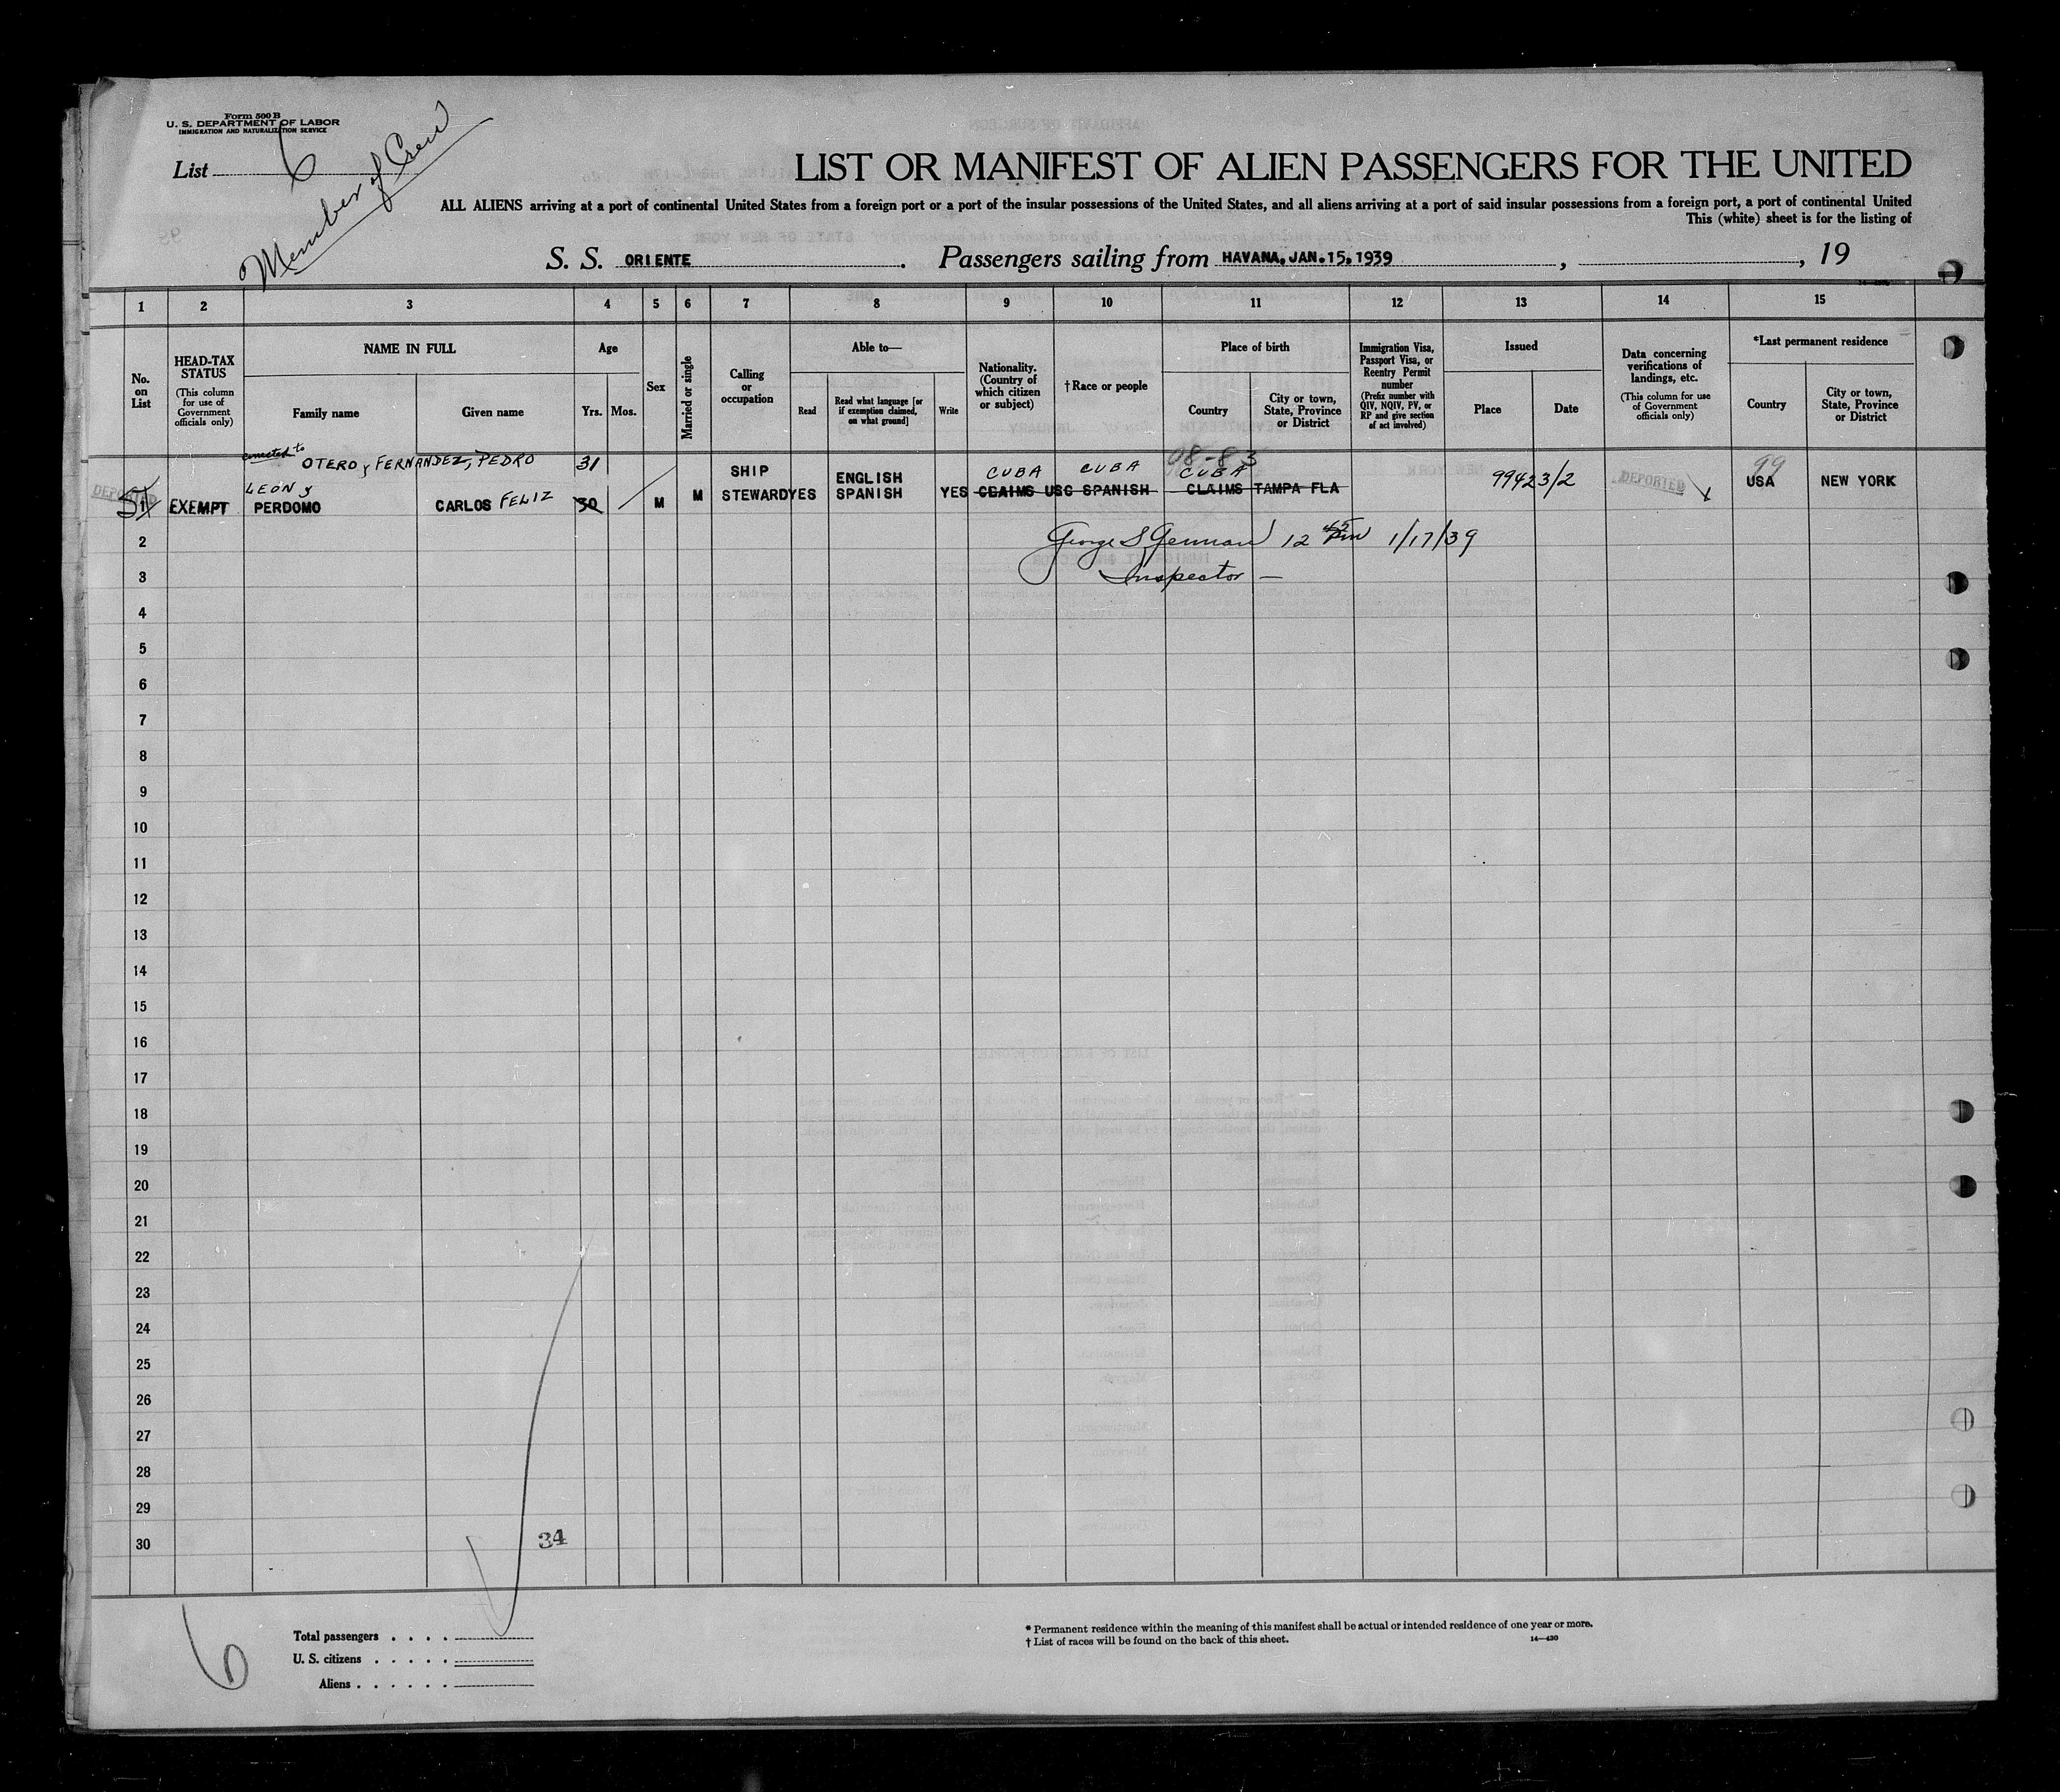 Form 500 B
U. S. DEPARTMENT OF LABOR
IMMIGRATION AND NATURALIZATION SERVICE
List 6
Member of Crew
LIST OR MANIFEST OF ALIEN PASSENGERS FOR THE UNITED
ALL ALIENS arriving at a port of continental United States from a foreign port or a port of the insular possessions of the United States, and all aliens arriving at a port of said insular possessions from a foreign port, a port of continental United
This (white) sheet is for the listing of
S. S. ORIENTE . Passengers sailing from HAVANA, JAN. 15, 1939 , , 19
1 2 3 4 5 6 7 8 9 10 11 12 13 14 15
No. on List
HEAD-TAX STATUS (This column for use of Government officials only)
NAME IN FULL
Family name
Given name
Age
Yrs. Mos.
Sex
Married or single
Calling or occupation
Able to—
Read
Read what language [or if exemption claimed, on what ground]
Write
Nationality. (Country of which citizen or subject)
†Race or people
Place of birth
Country
City or town, State, Province or District
Immigration Visa, Passport Visa, or Reentry Permit number (Prefix number with QIV, NQIV, PV, or RP and give section of act involved)
Issued
Place
Date
Data concerning verifications of landings, etc. (This column for use of Government officials only)
*Last permanent residence
Country
City or town, State, Province or District
corrected to OTERO y FERNANDEZ, PEDRO 31 CUBA CUBA 08-83 CUBA 99423/2 99
DEPORTED 1 EXEMPT LEON y PERDOMO CARLOS FELIZ 30 M M SHIP STEWARD YES ENGLISH SPANISH YES CLAIMS USC SPANISH CLAIMS TAMPA FLA DEPORTED USA NEW YORK
2 George S German 12 45 PM 1/17/39
3 Inspector —
4
5
6
7
8
9
10
11
12
13
14
15
16
17
18
19
20
21
22
23
24
25
26
27
28
29
30
34
6
Total passengers . . . .
U. S. citizens . . . . .
Aliens . . . . . .
* Permanent residence within the meaning of this manifest shall be actual or intended residence of one year or more.
† List of races will be found on the back of this sheet. 14—430